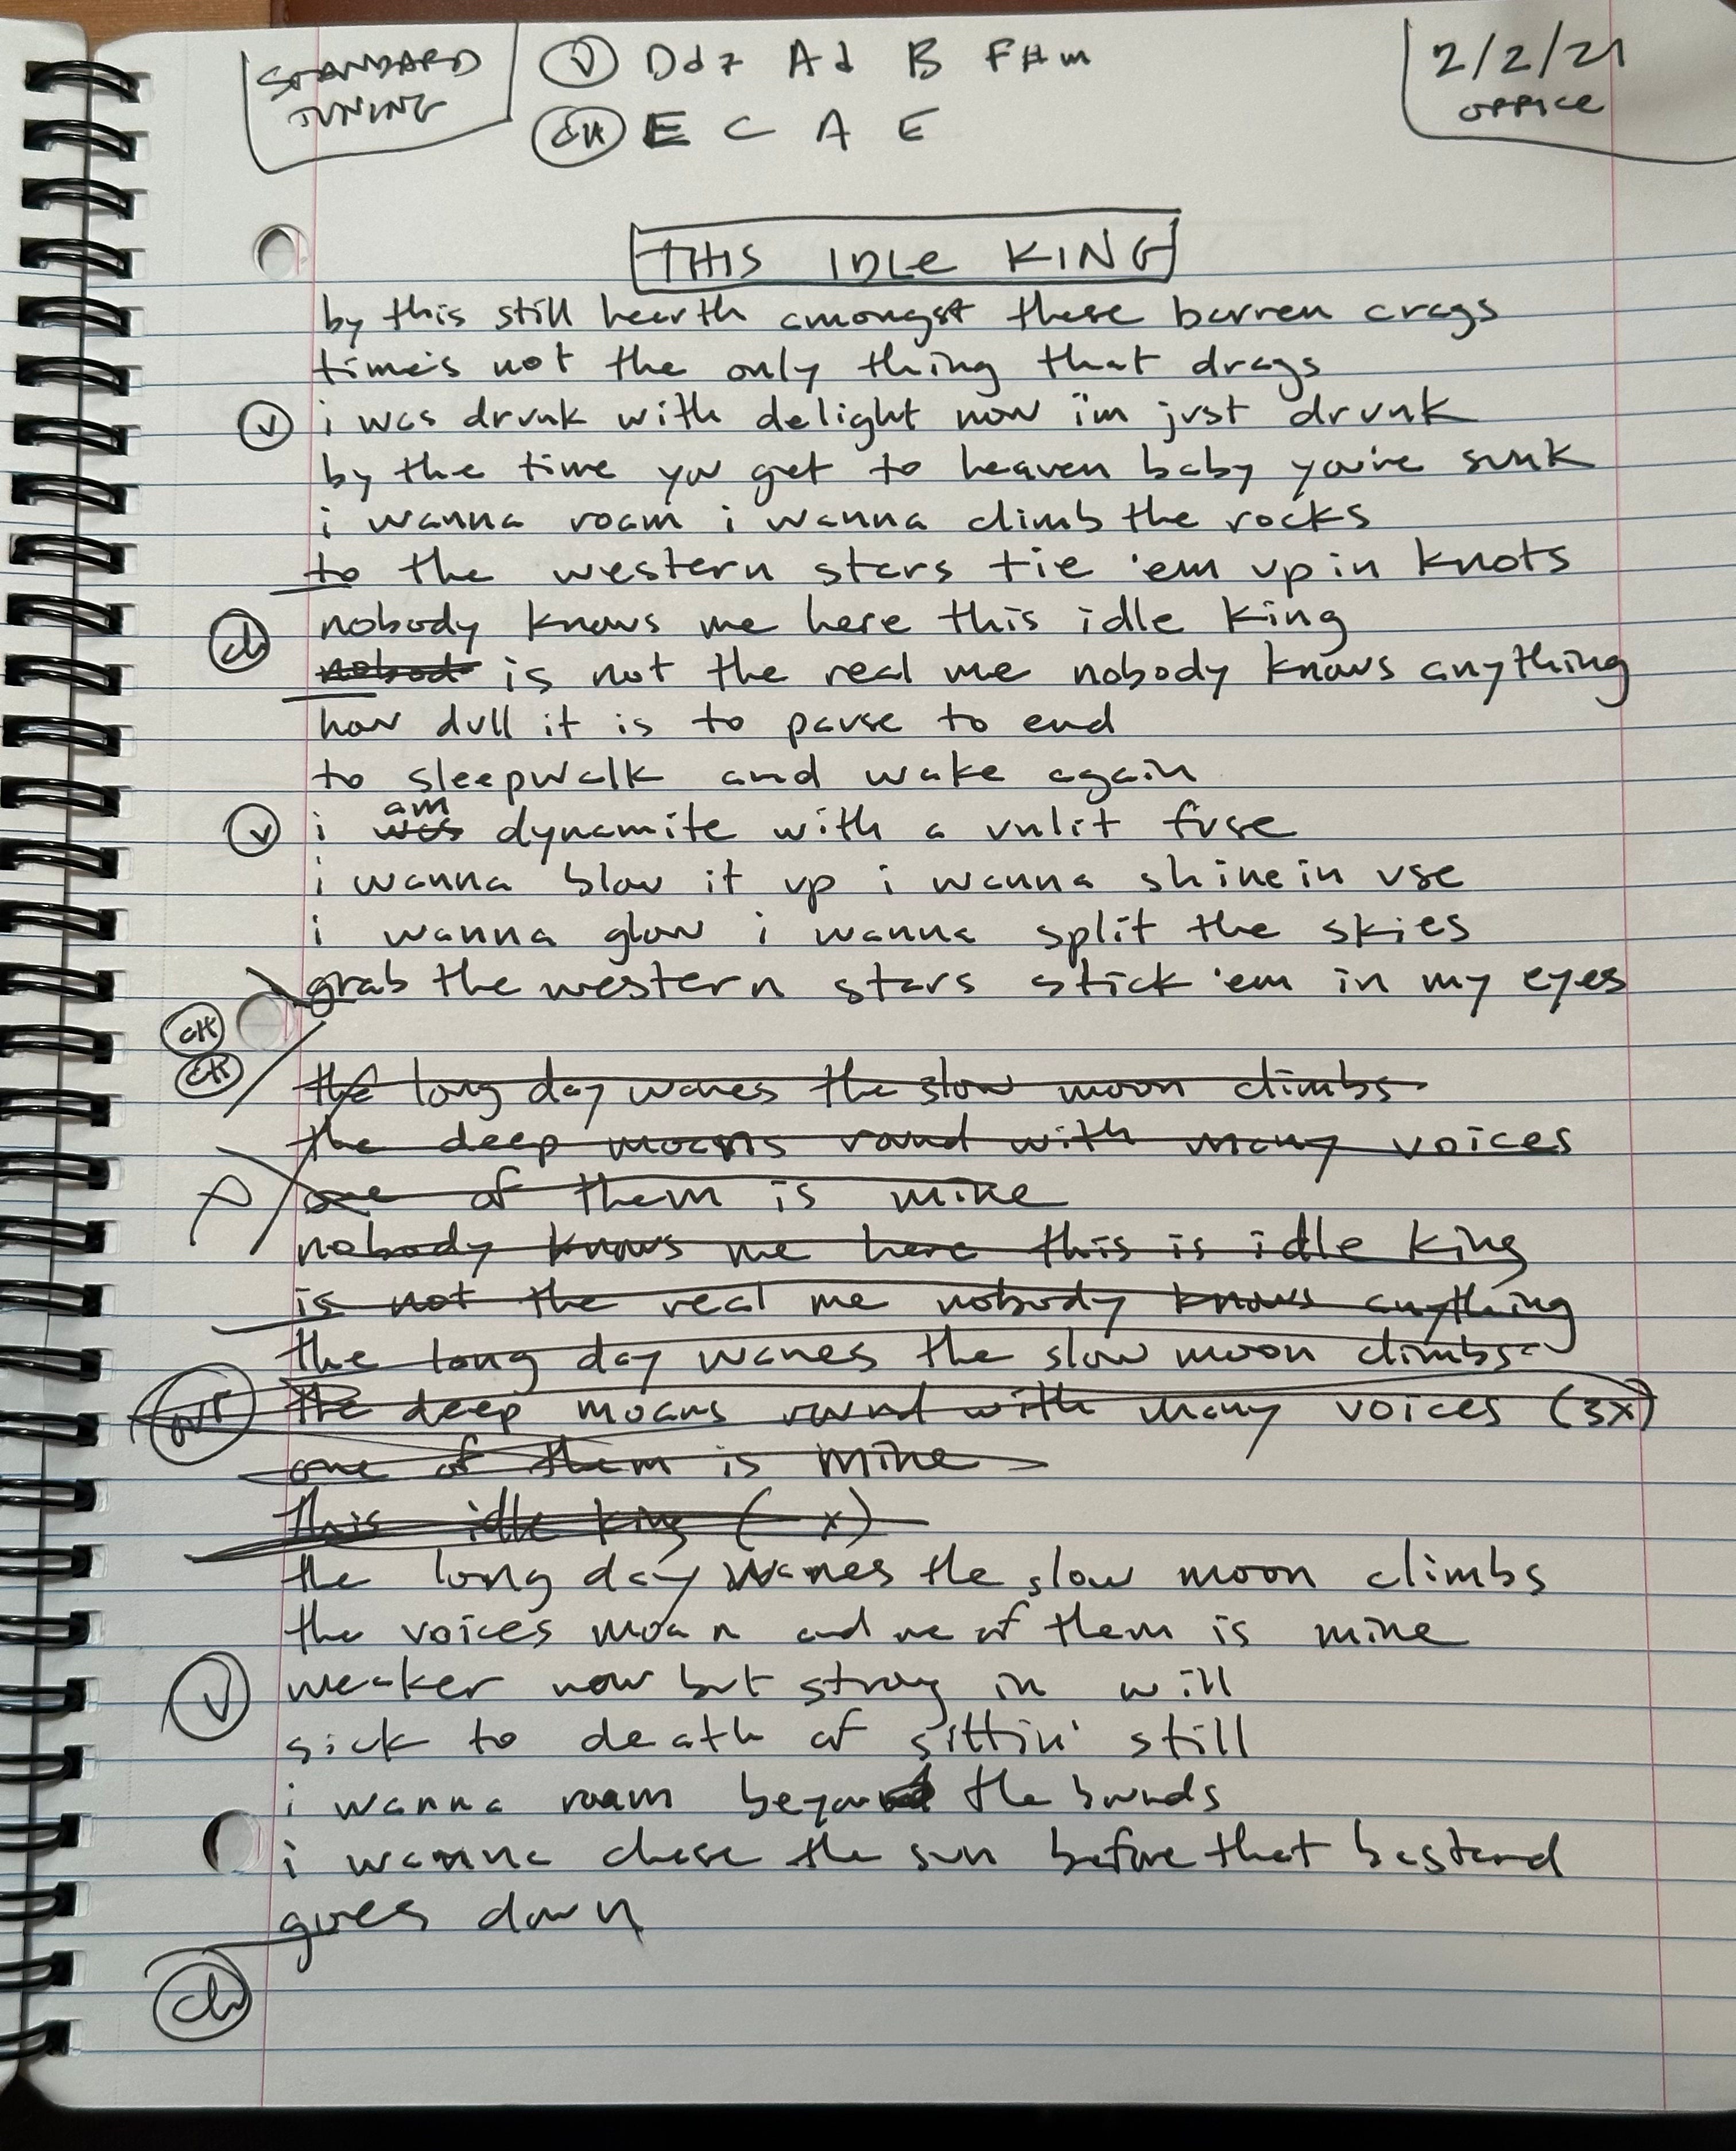 STANDARD
TUNING
V Dd7 Ad B F#m
CH E C A E
2/2/21
OFFICE
THIS IDLE KING
by this still hearth amongst these barren crags
time's not the only thing that drags
V i was drunk with delight now i'm just drunk
by the time you get to heaven baby you're sunk
i wanna roam i wanna climb the rocks
to the western stars tie 'em up in knots
nobody knows me here this idle king
ch nobod is not the real me nobody knows anything
how dull it is to pause to end
to sleepwalk and wake again
am
V i was dynamite with a unlit fuse
i wanna blow it up i wanna shine in use
i wanna glow i wanna split the skies
grab the western stars stick 'em in my eyes
CH
CH the long day wanes the slow moon climbs
the deep moans round with many voices
one of them is mine
nobody knows me here this is idle king
is not the real me nobody knows anything
the long day wanes the slow moon climbs
OUT the deep moans round with many voices (3x)
one of them is mine
this idle king ( x)
the long day wanes the slow moon climbs
the voices moan and one of them is mine
V weaker now but strong in will
sick to death of sittin' still
i wanna roam beyond the bounds
i wanna chase the sun before that bastard
goes down
ch